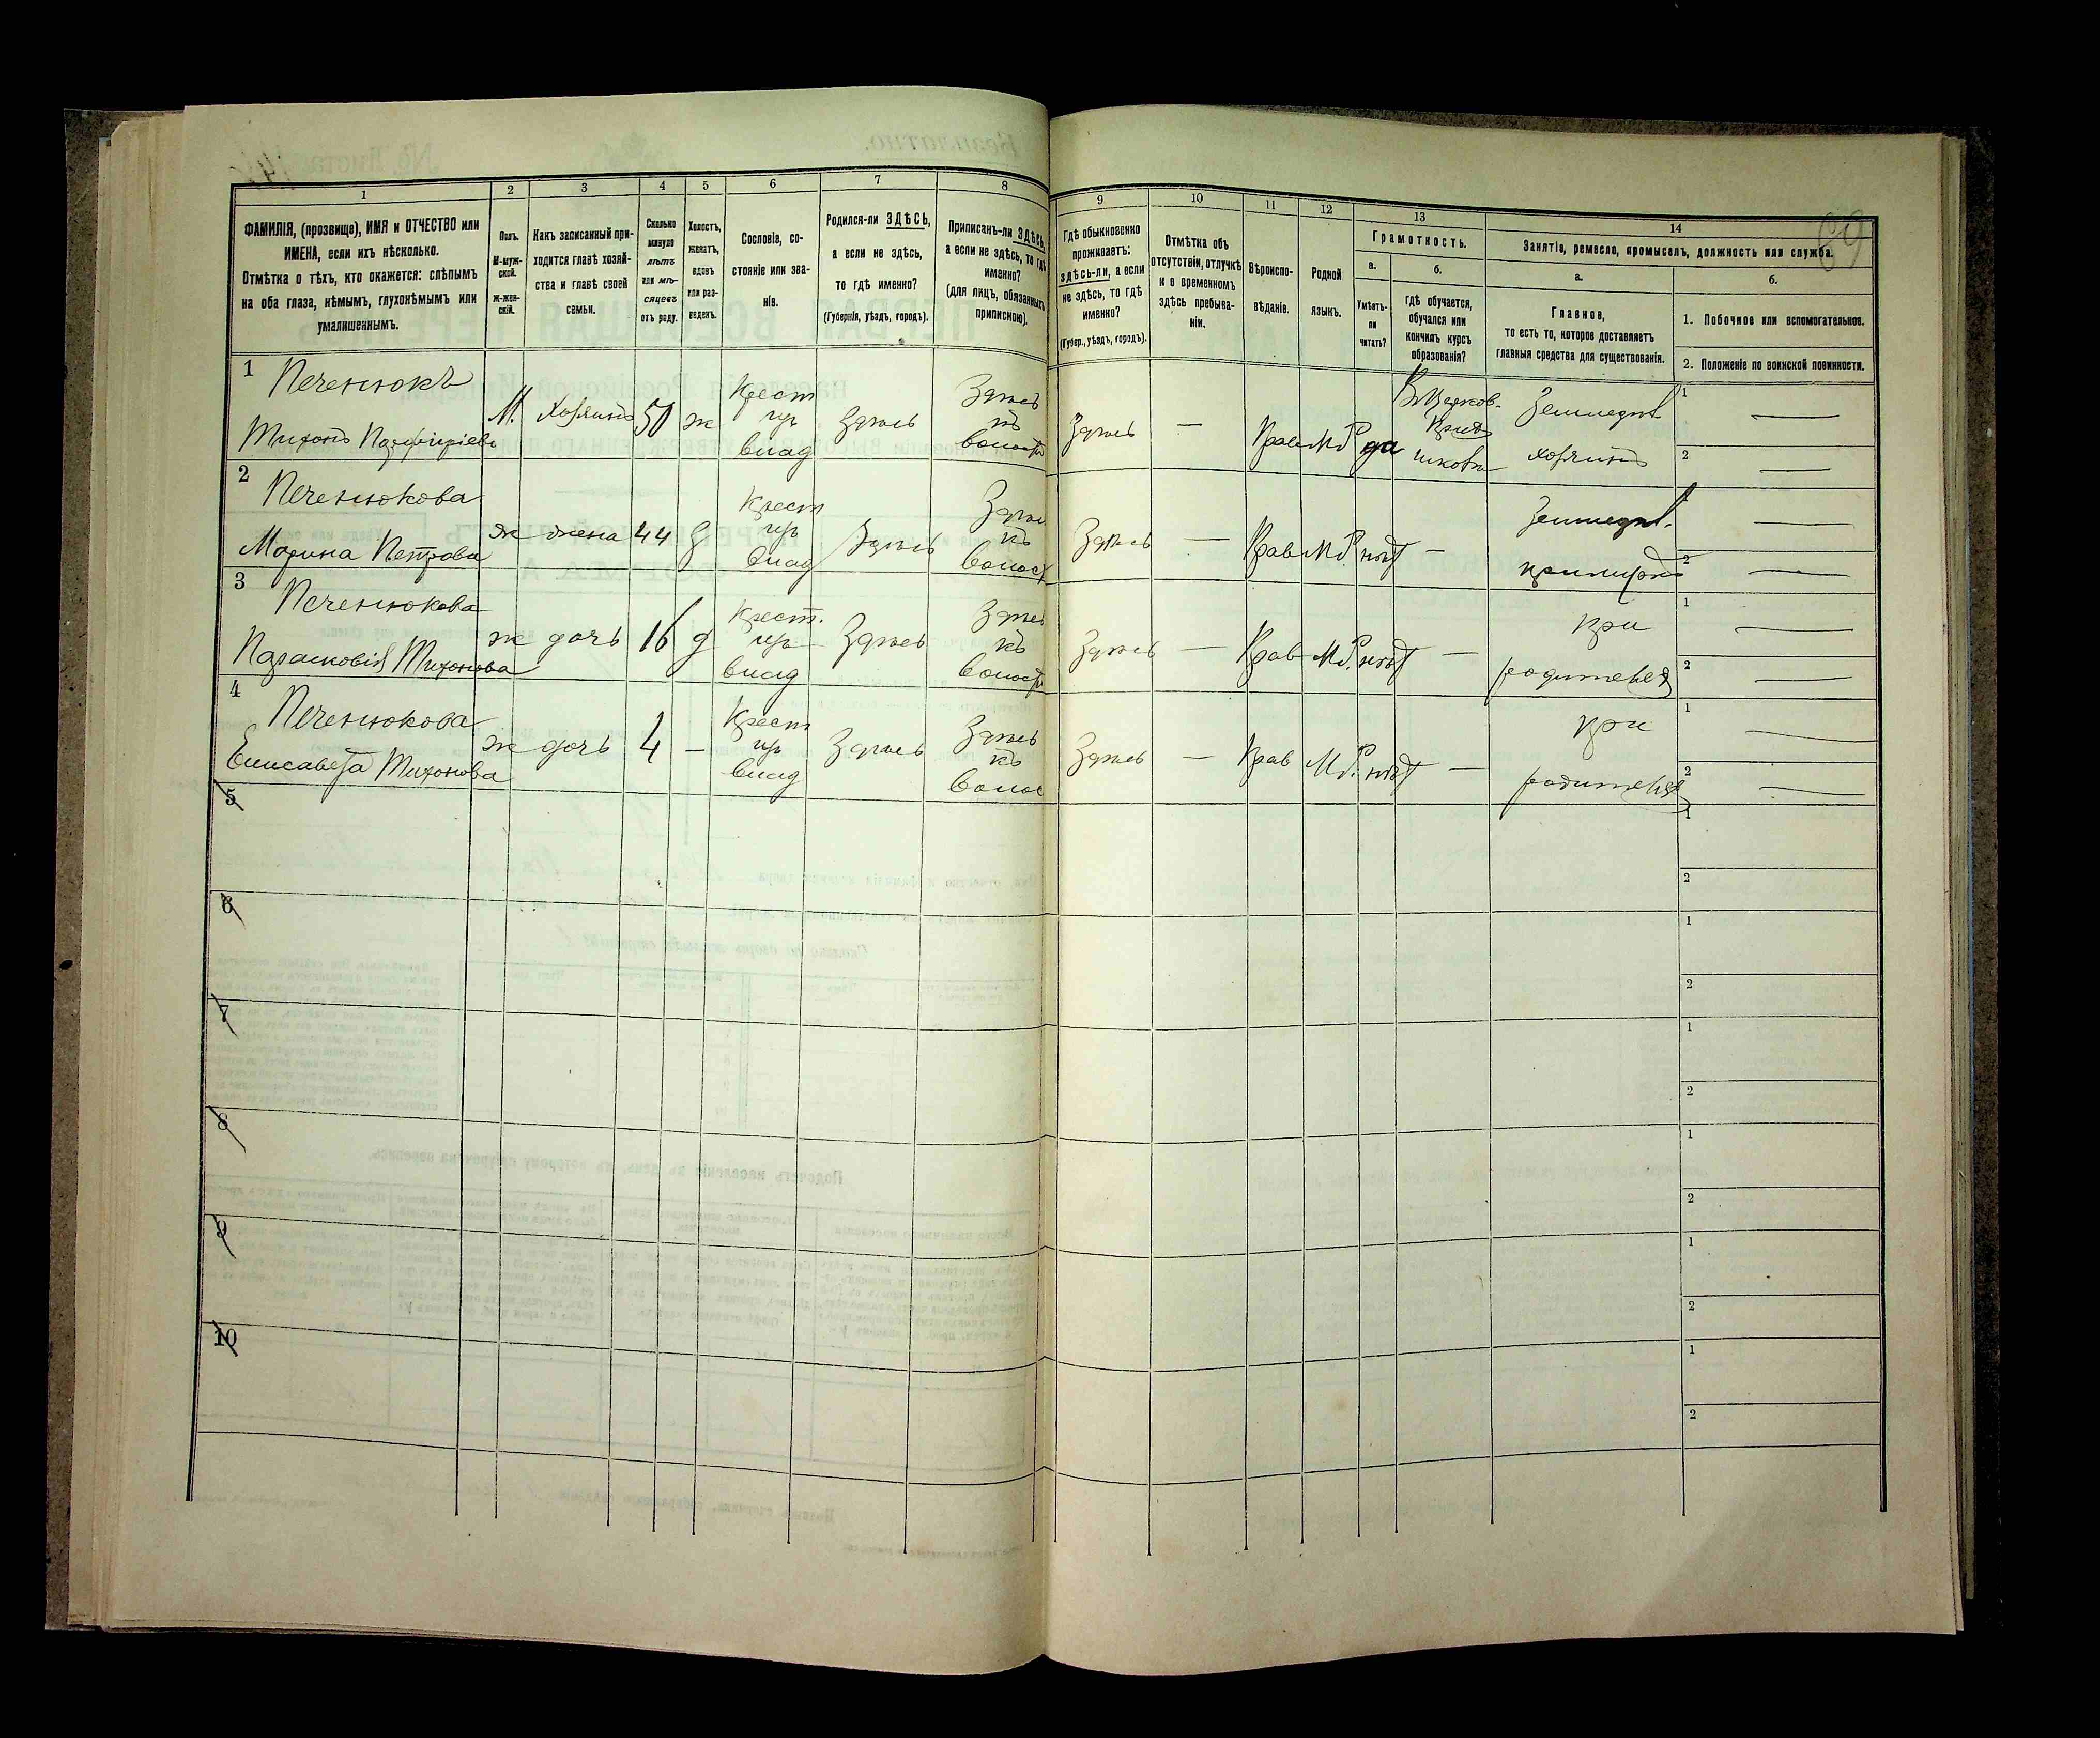 1
ФАМИЛІЯ, (прозвище), ИМЯ и ОТЧЕСТВО или
ИМЕНА, если ихъ нѣсколько.
Отмѣтка о тѣхъ, кто окажется: слѣпымъ
на оба глаза, нѣмымъ, глухонѣмымъ или
умалишеннымъ.
2
Полъ.
М-муж-
ской.
ж-жен-
скій.
3
Какъ записанный при-
ходится главѣ хозяй-
ства и главѣ своей
семьи.
4
Сколько
минуло
лѣтъ
или мѣ-
сяцевъ
отъ роду.
5
Холостъ,
женатъ,
вдовъ
или раз-
веденъ.
6
Сословіе, со-
стояніе или зва-
ніе.
7
Родился-ли ЗДѢСЬ,
а если не здѣсь,
то гдѣ именно?
(Губернія, уѣздъ, городъ).
8
Приписанъ-ли ЗДѢСЬ,
а если не здѣсь, то гдѣ
именно?
(для лицъ, обязанныхъ
припискою).
9
Гдѣ обыкновенно
проживаетъ:
здѣсь-ли, а если
не здѣсь, то гдѣ
именно?
(Губер., уѣздъ, городъ).
10
Отмѣтка объ
отсутствіи, отлучкѣ
и о временномъ
здѣсь пребыва-
ніи.
11
Вѣроиспо-
вѣданіе.
12
Родной
языкъ.
13
Грамотность.
а.
Умѣетъ-
ли
читать?
б.
гдѣ обучается,
обучался или
кончилъ курсъ
образованія?
14
Занятіе, ремесло, промыселъ, должность или служба.
а.
Главное,
то есть то, которое доставляетъ
главныя средства для существованія.
б.
1. Побочное или вспомогательное.
2. Положеніе по воинской повинности.
69
1
Печенюкъ
Тихонъ Парфиріевъ
М.
Хозяинъ
50
ж
Крест
изъ
влад
Здѣсь
Здѣсь
къ
волости
Здѣсь
—
Прав
М.Р.
да
Въ Церков-
Прих
школѣ
Земледѣл
хозяинъ
1 —
2 —
2
Печенюкова
Марина Петрова
ж
жена
44
З
Крест
изъ
влад
Здѣсь
Здѣсь
къ
волост
Здѣсь
—
Прав
М.Р.
нѣт
—
Земледѣл.
при мужѣ
—
2 —
3
Печенюкова
Парасковія Тихонова
ж
дочь
16
д
Крест.
изъ
влад
Здѣсь
Здѣсь
къ
волости
Здѣсь
—
Прав
М.Р.
нѣт
—
при
родителях
1 —
2 —
4
Печенюкова
Елисавета Тихонова
ж
дочь
4
—
Крест
изъ
влад
Здѣсь
Здѣсь
къ
волос
Здѣсь
—
Прав
М.Р.
нѣт
—
при
родителях
1 —
2 —
5
1
2
6
1
2
7
1
2
8
1
2
9
1
2
10
1
2